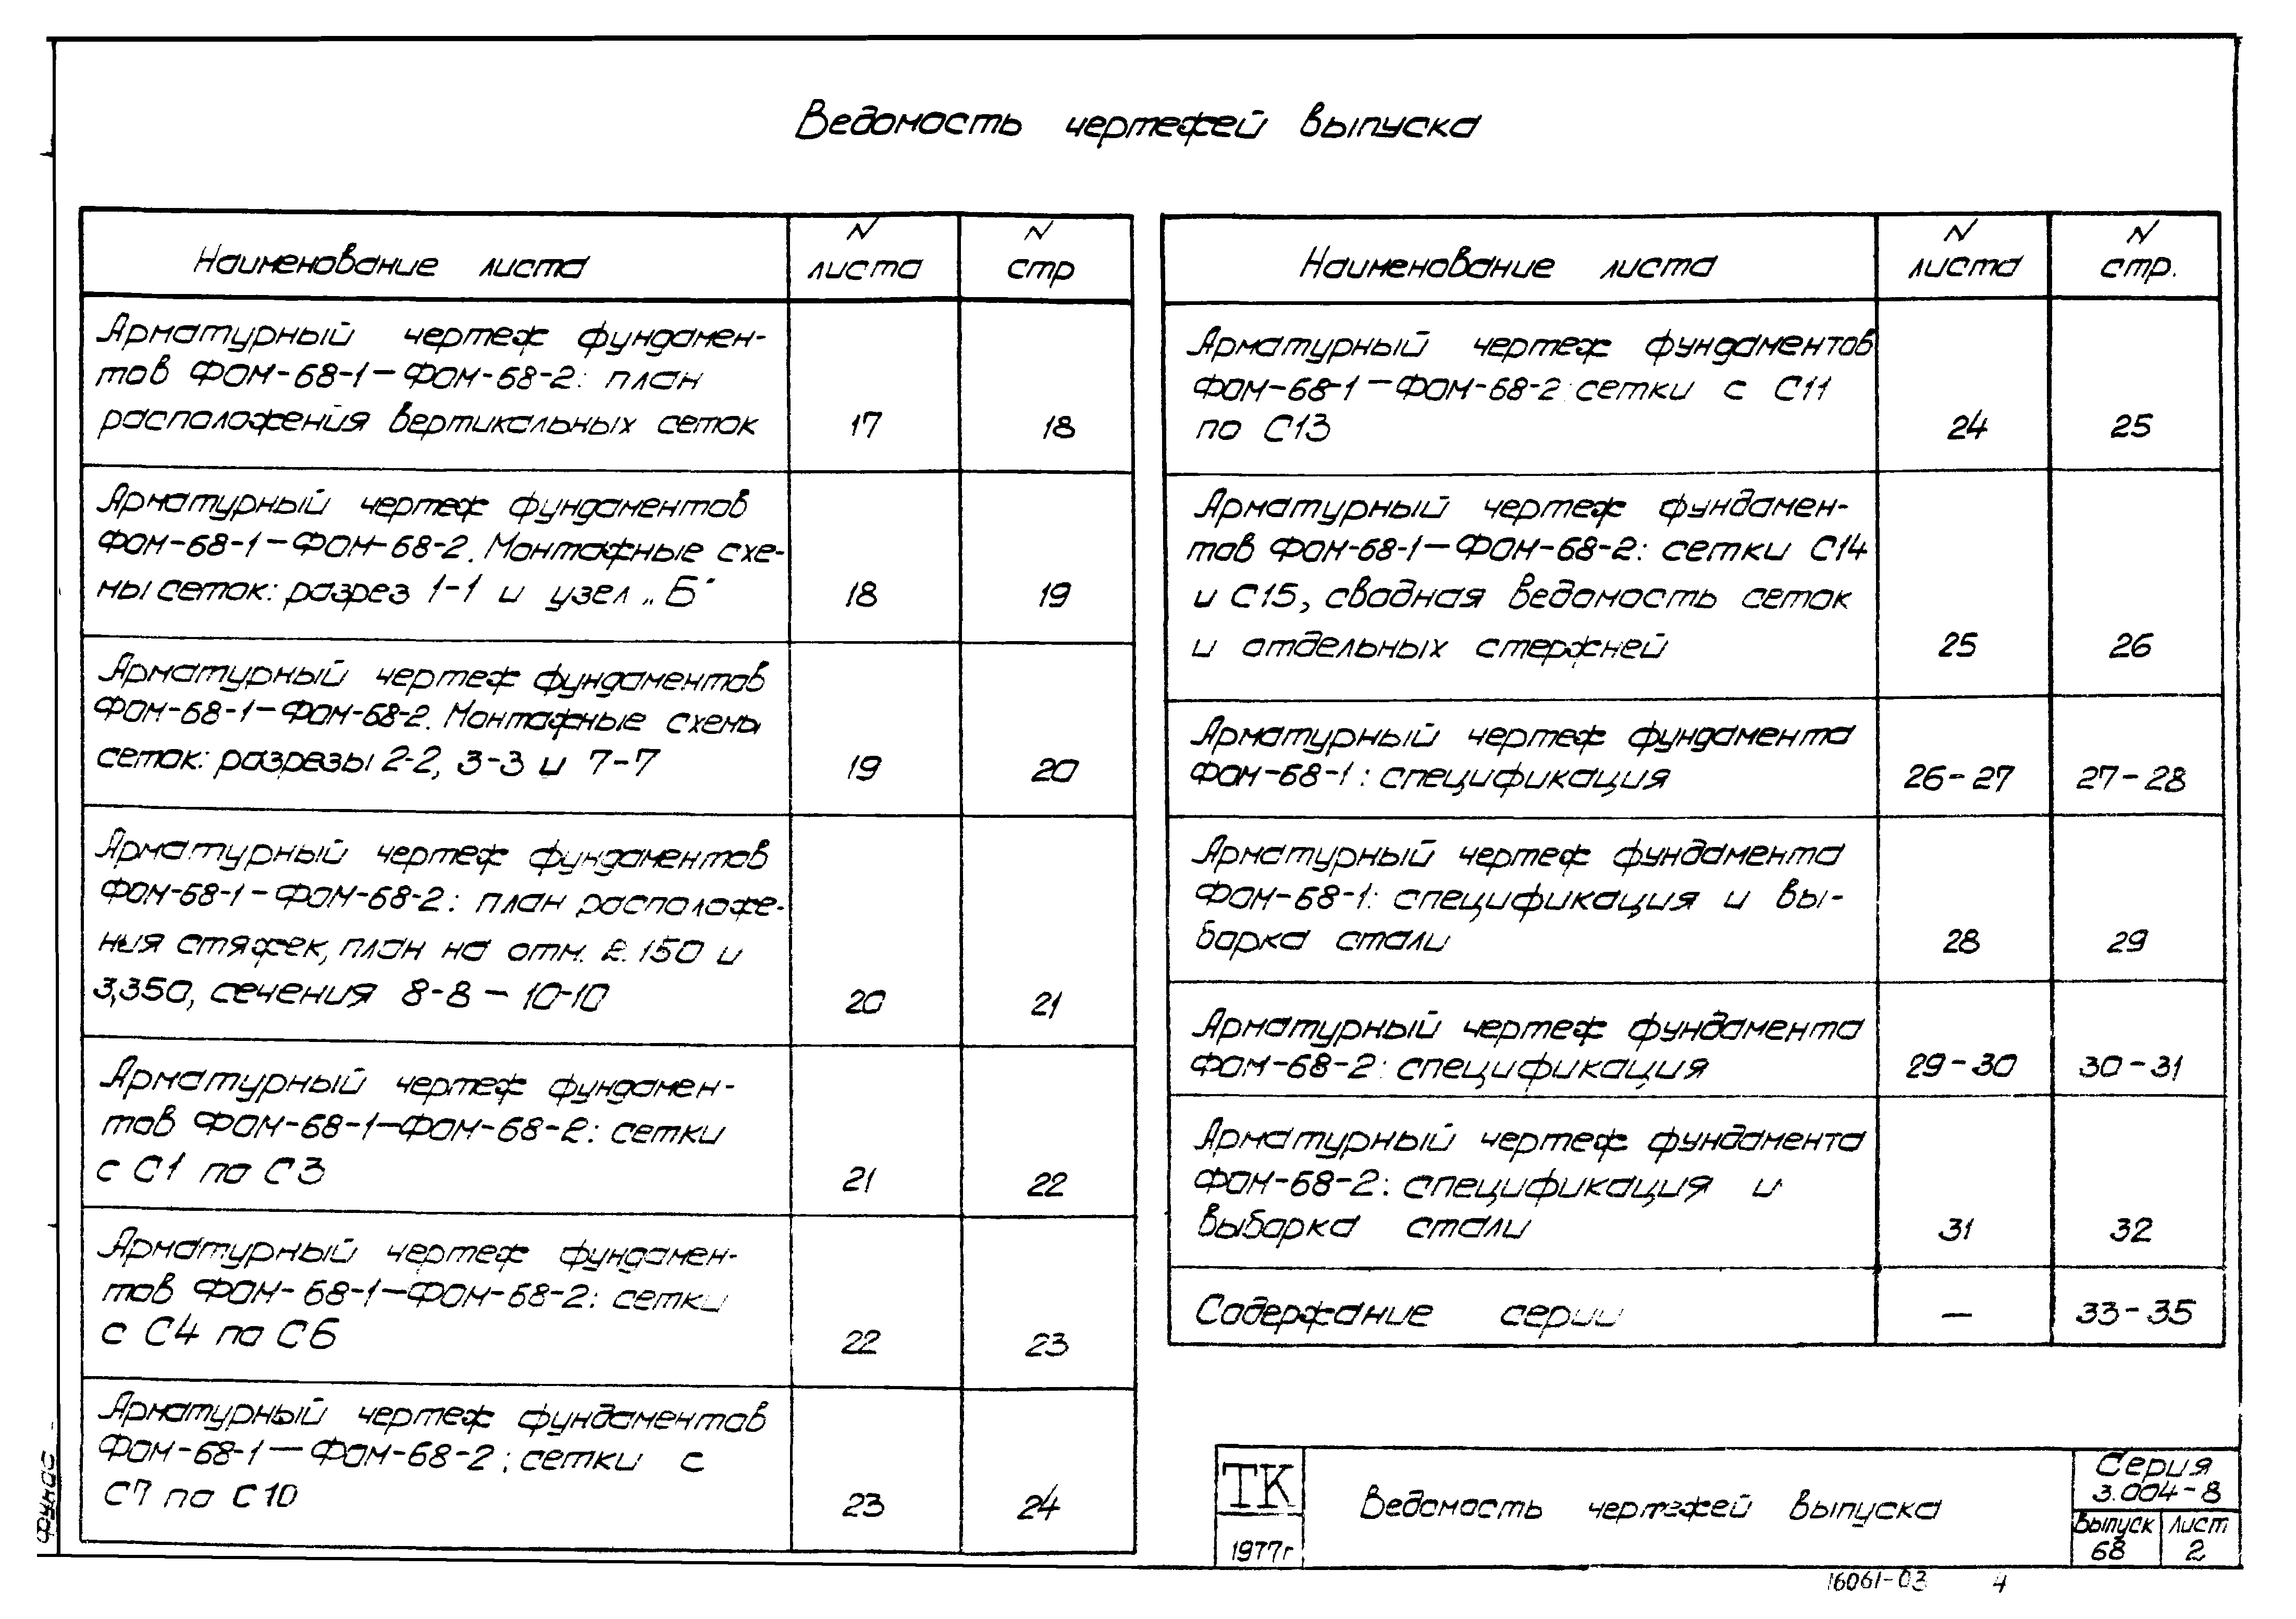 Ведомость чертежей выпуска
Наименование листа
N листа
N стр
Арматурный чертеж фундамен-
тов ФОМ-68-1 — ФОМ-68-2: план
расположения вертикальных сеток
17
18
Арматурный чертеж фундаментов
ФОМ-68-1 — ФОМ-68-2. Монтажные схе-
мы сеток: разрез 1-1 и узел „Б"
18
19
Арматурный чертеж фундаментов
ФОМ-68-1 — ФОМ-68-2. Монтажные схемы
сеток: разрезы 2-2, 3-3 и 7-7
19
20
Арматурный чертеж фундаментов
ФОМ-68-1 — ФОМ-68-2: план расположе-
ния стяжек, план на отм. 2.150 и
3,350, сечения 8-8 — 10-10
20
21
Арматурный чертеж фундамен-
тов ФОМ-68-1—ФОМ-68-2: сетки
с С1 по С3
21
22
Арматурный чертеж фундамен-
тов ФОМ-68-1—ФОМ-68-2: сетки
с С4 по С6
22
23
Арматурный чертеж фундаментов
ФОМ-68-1 — ФОМ-68-2: сетки с
С7 по С10
23
24
Наименование листа
N листа
N стр.
Арматурный чертеж фундаментов
ФОМ-68-1 — ФОМ-68-2: сетки с С11
по С13
24
25
Арматурный чертеж фундамен-
тов ФОМ-68-1 — ФОМ-68-2: сетки С14
и С15, сводная ведомость сеток
и отдельных стержней
25
26
Арматурный чертеж фундамента
ФОМ-68-1: спецификация
26-27
27-28
Арматурный чертеж фундамента
ФОМ-68-1: спецификация и вы-
борка стали
28
29
Арматурный чертеж фундамента
ФОМ-68-2: спецификация
29-30
30-31
Арматурный чертеж фундамента
ФОМ-68-2: спецификация и
выборка стали
31
32
Содержание серии
—
33-35
ТК
1977г
Ведомость чертежей выпуска
Серия
3.004-8
Выпуск
68
Лист
2
16061-03 4